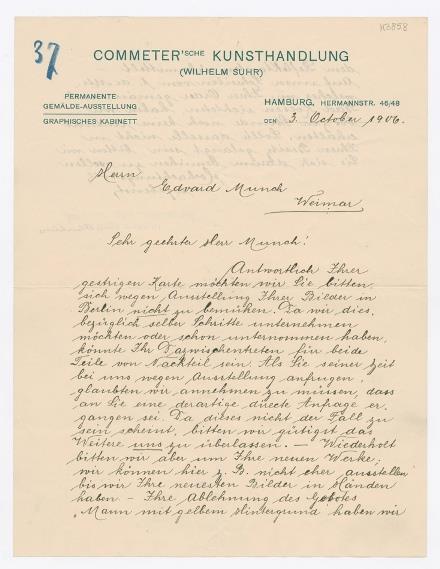 K3858
37
COMMETER'SCHE KUNSTHANDLUNG
(WILHELM SUHR)
PERMANENTE
GEMÄLDE-AUSSTELLUNG
GRAPHISCHES KABINETT
HAMBURG, HERMANNSTR. 46/48
DEN 3. October 1906.
Herrn
Edvard Munch
Weimar
Sehr geehrter Herr Munch!
Antwortlich Ihrer
gestrigen Karte möchten wir Sie bitten,
sich wegen Ausstellung Ihrer Bilder in
Berlin nicht zu bemühen. Da wir dies,
bezüglich selber Schritte unternehmen
möchten oder schon unternommen haben,
könnte Ihr Dazwischentreten für beide
Teile von Nachteil sein. Als Sie seiner Zeit
bei uns wegen Ausstellung anfrugen,
glaubten wir annehmen zu müssen, dass
an Sie eine derartige directe Anfrage er,
gangen sei. Da dieses nicht der Fall zu
sein scheint, bitten wir gütigst das
Weitere uns zu überlassen. — Wiederholt
bitten wir aber um Ihre neuen Werke;
wir können hier z. B. nicht eher ausstellen
bis wir Ihre neuesten Bilder in Händen
haben – Ihre Ablehnung des Gebotes
„Mann mit gelbem Hintergrund" haben wir